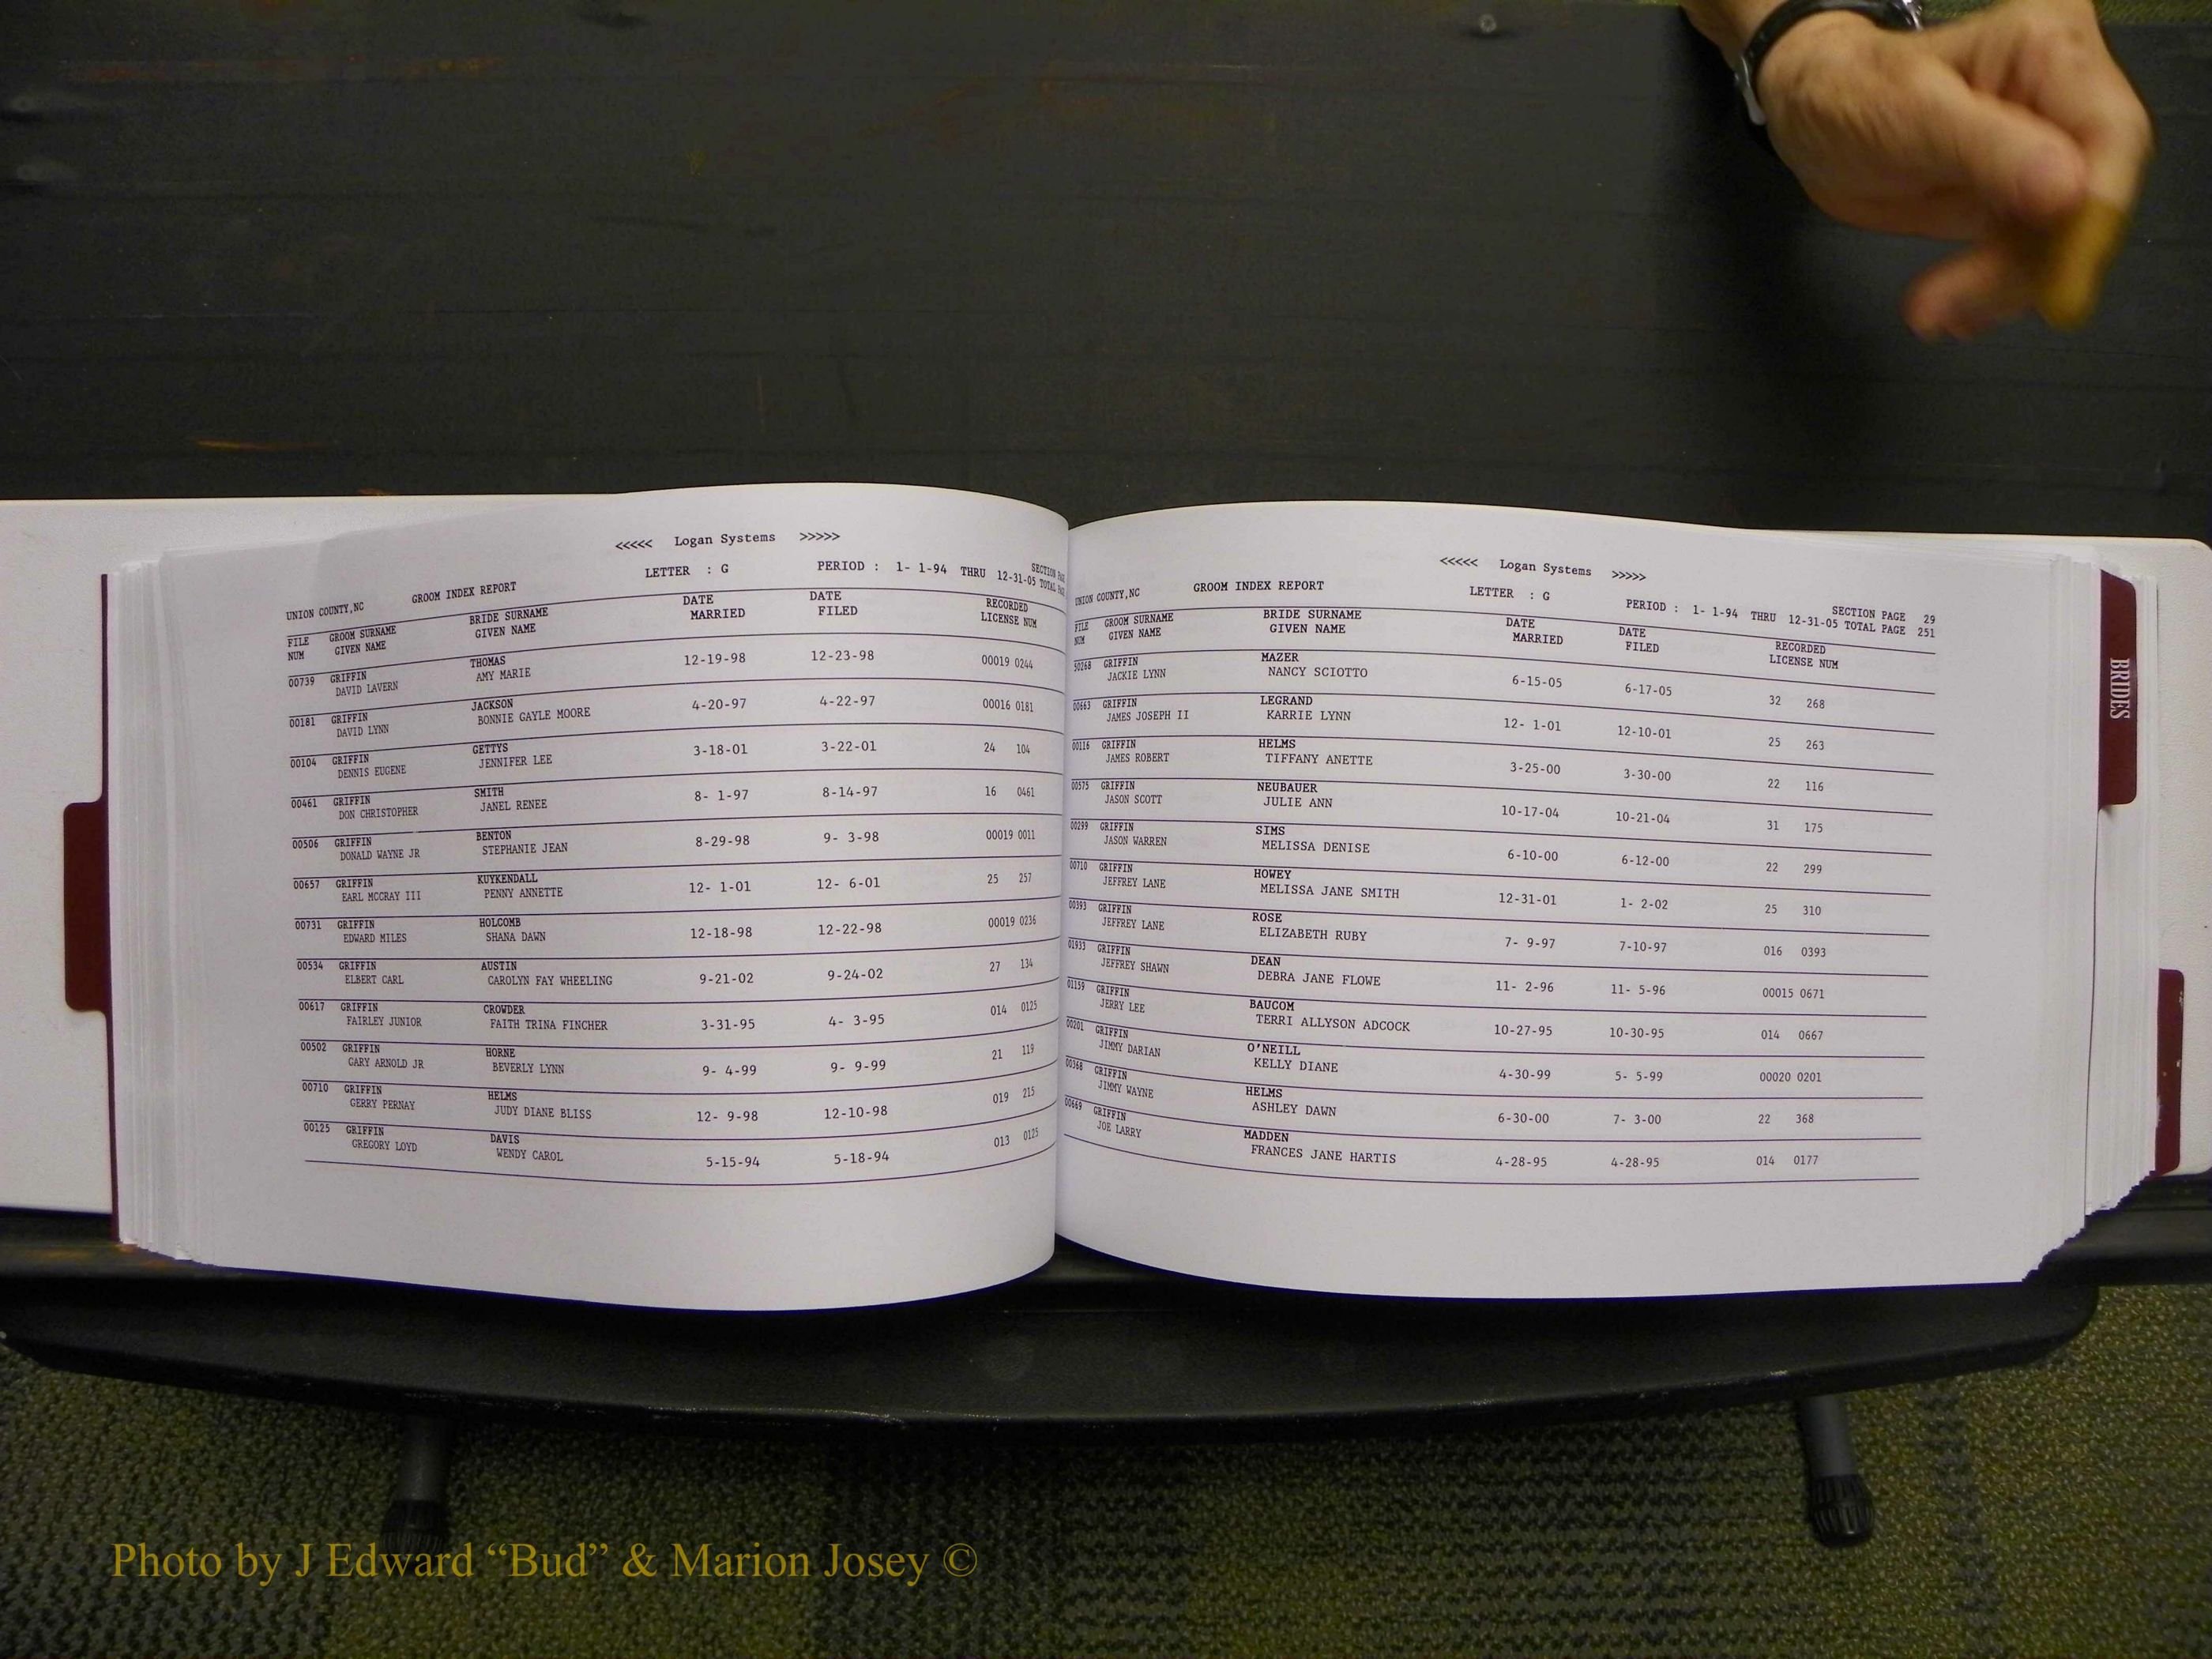 <<<<< Logan Systems >>>>>
LETTER : G PERIOD : 1- 1-94 THRU 12-31-05 SECTION TOTAL
UNION COUNTY,NC GROOM INDEX REPORT
FILE GROOM SURNAME BRIDE SURNAME DATE DATE RECORDED
NUM GIVEN NAME GIVEN NAME MARRIED FILED LICENSE NUM
00739 GRIFFIN THOMAS 12-19-98 12-23-98 00019 0244
DAVID LAVERN AMY MARIE
00181 GRIFFIN JACKSON 4-20-97 4-22-97 00016 0181
DAVID LYNN BONNIE GAYLE MOORE
00104 GRIFFIN GETTYS 3-18-01 3-22-01 24 104
DENNIS EUGENE JENNIFER LEE
00461 GRIFFIN SMITH 8- 1-97 8-14-97 16 0461
DON CHRISTOPHER JANEL RENEE
00506 GRIFFIN BENTON 8-29-98 9- 3-98 00019 0011
DONALD WAYNE JR STEPHANIE JEAN
00657 GRIFFIN KUYKENDALL 12- 1-01 12- 6-01 25 257
EARL MCCRAY III PENNY ANNETTE
00731 GRIFFIN HOLCOMB 12-18-98 12-22-98 00019 0236
EDWARD MILES SHANA DAWN
00534 GRIFFIN AUSTIN 9-21-02 9-24-02 27 134
ELBERT CARL CAROLYN FAY WHEELING
00617 GRIFFIN CROWDER 3-31-95 4- 3-95 014 0125
FAIRLEY JUNIOR FAITH TRINA FINCHER
00502 GRIFFIN HORNE 9- 4-99 9- 9-99 21 119
GARY ARNOLD JR BEVERLY LYNN
00710 GRIFFIN HELMS 12- 9-98 12-10-98 019 215
GERRY PERNAY JUDY DIANE BLISS
00125 GRIFFIN DAVIS 5-15-94 5-18-94 013 0125
GREGORY LOYD WENDY CAROL
<<<<< Logan Systems >>>>>
UNION COUNTY,NC GROOM INDEX REPORT LETTER : G PERIOD : 1- 1-94 THRU 12-31-05 SECTION PAGE 29
TOTAL PAGE 251
FILE GROOM SURNAME BRIDE SURNAME DATE DATE RECORDED
NUM GIVEN NAME GIVEN NAME MARRIED FILED LICENSE NUM
50268 GRIFFIN MAZER 6-15-05 6-17-05 32 268
JACKIE LYNN NANCY SCIOTTO
00663 GRIFFIN LEGRAND 12- 1-01 12-10-01 25 263
JAMES JOSEPH II KARRIE LYNN
00116 GRIFFIN HELMS 3-25-00 3-30-00 22 116
JAMES ROBERT TIFFANY ANETTE
00575 GRIFFIN NEUBAUER 10-17-04 10-21-04 31 175
JASON SCOTT JULIE ANN
00299 GRIFFIN SIMS 6-10-00 6-12-00 22 299
JASON WARREN MELISSA DENISE
00710 GRIFFIN HOWEY 12-31-01 1- 2-02 25 310
JEFFREY LANE MELISSA JANE SMITH
00393 GRIFFIN ROSE 7- 9-97 7-10-97 016 0393
JEFFREY LANE ELIZABETH RUBY
01933 GRIFFIN DEAN 11- 2-96 11- 5-96 00015 0671
JEFFREY SHAWN DEBRA JANE FLOWE
01159 GRIFFIN BAUCOM 10-27-95 10-30-95 014 0667
JERRY LEE TERRI ALLYSON ADCOCK
00201 GRIFFIN O'NEILL 4-30-99 5- 5-99 00020 0201
JIMMY DARIAN KELLY DIANE
00368 GRIFFIN HELMS 6-30-00 7- 3-00 22 368
JIMMY WAYNE ASHLEY DAWN
00669 GRIFFIN MADDEN 4-28-95 4-28-95 014 0177
JOE LARRY FRANCES JANE HARTIS
BRIDES
Photo by J Edward “Bud” & Marion Josey ©